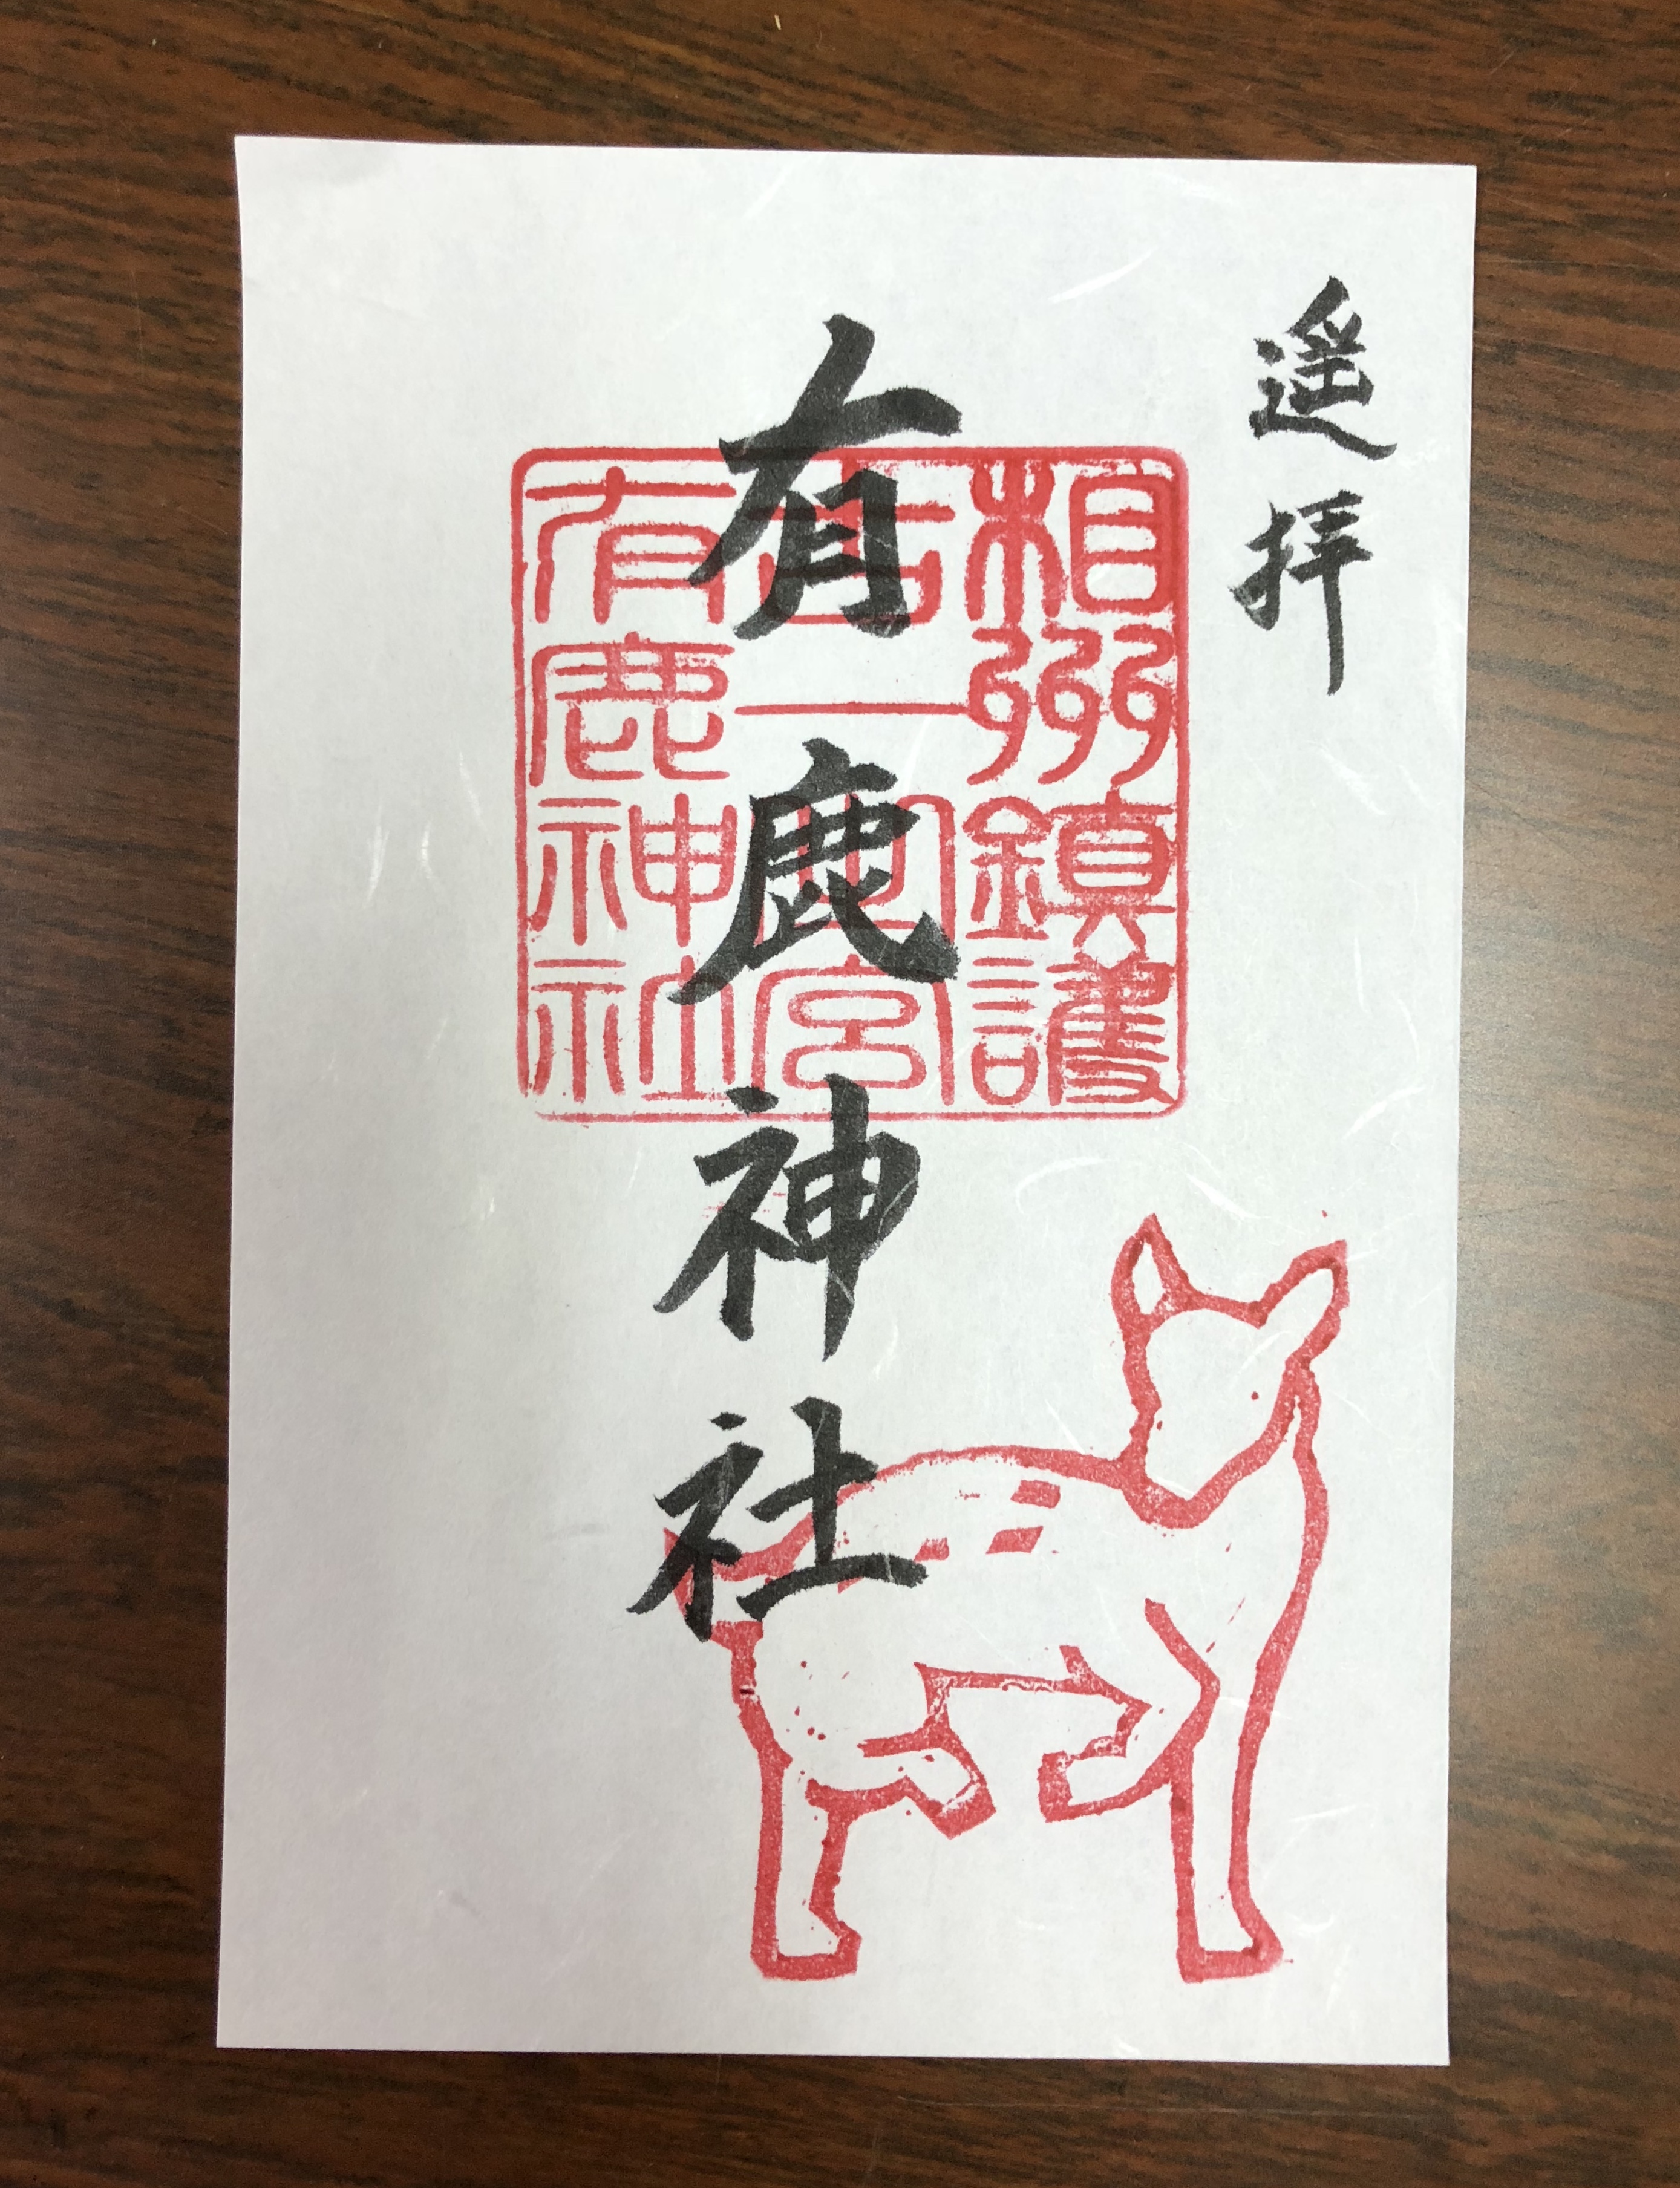 遥拝
有鹿神社
相州鎮護
古一之宮
有鹿神社